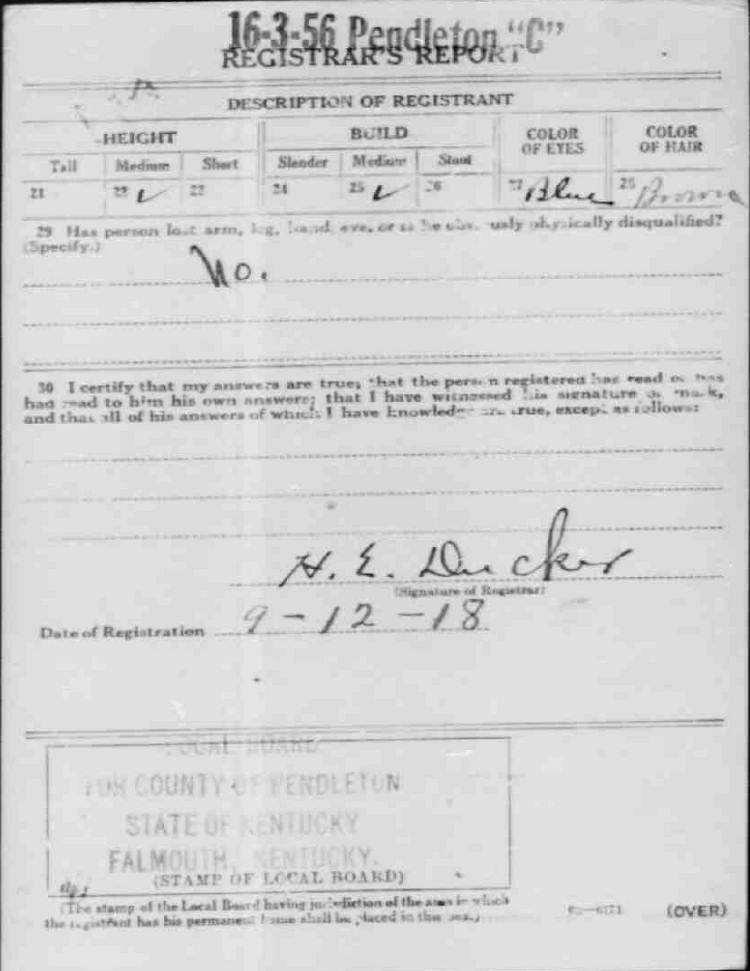 16-3-56 Pendleton "C"
REGISTRAR'S REPORT
DESCRIPTION OF REGISTRANT
HEIGHT BUILD COLOR OF EYES COLOR OF HAIR
Tall Medium Short Slender Medium Stout
21 22 ✓ 23 24 25 ✓ 26 27 Blue 28 Brown
29 Has person lost arm, leg, hand, eye, or is he obviously physically disqualified?
(Specify.)
No.
30 I certify that my answers are true; that the person registered has read or has
had read to him his own answers; that I have witnessed his signature or mark,
and that all of his answers of which I have knowledge are true, except as follows:
H. E. Ducker
(Signature of Registrar)
Date of Registration 9-12-18
LOCAL BOARD
FOR COUNTY OF PENDLETON
STATE OF KENTUCKY
FALMOUTH, KENTUCKY.
(STAMP OF LOCAL BOARD)
(The stamp of the Local Board having jurisdiction of the area in which
the registrant has his permanent home shall be placed in this box.)
(OVER)